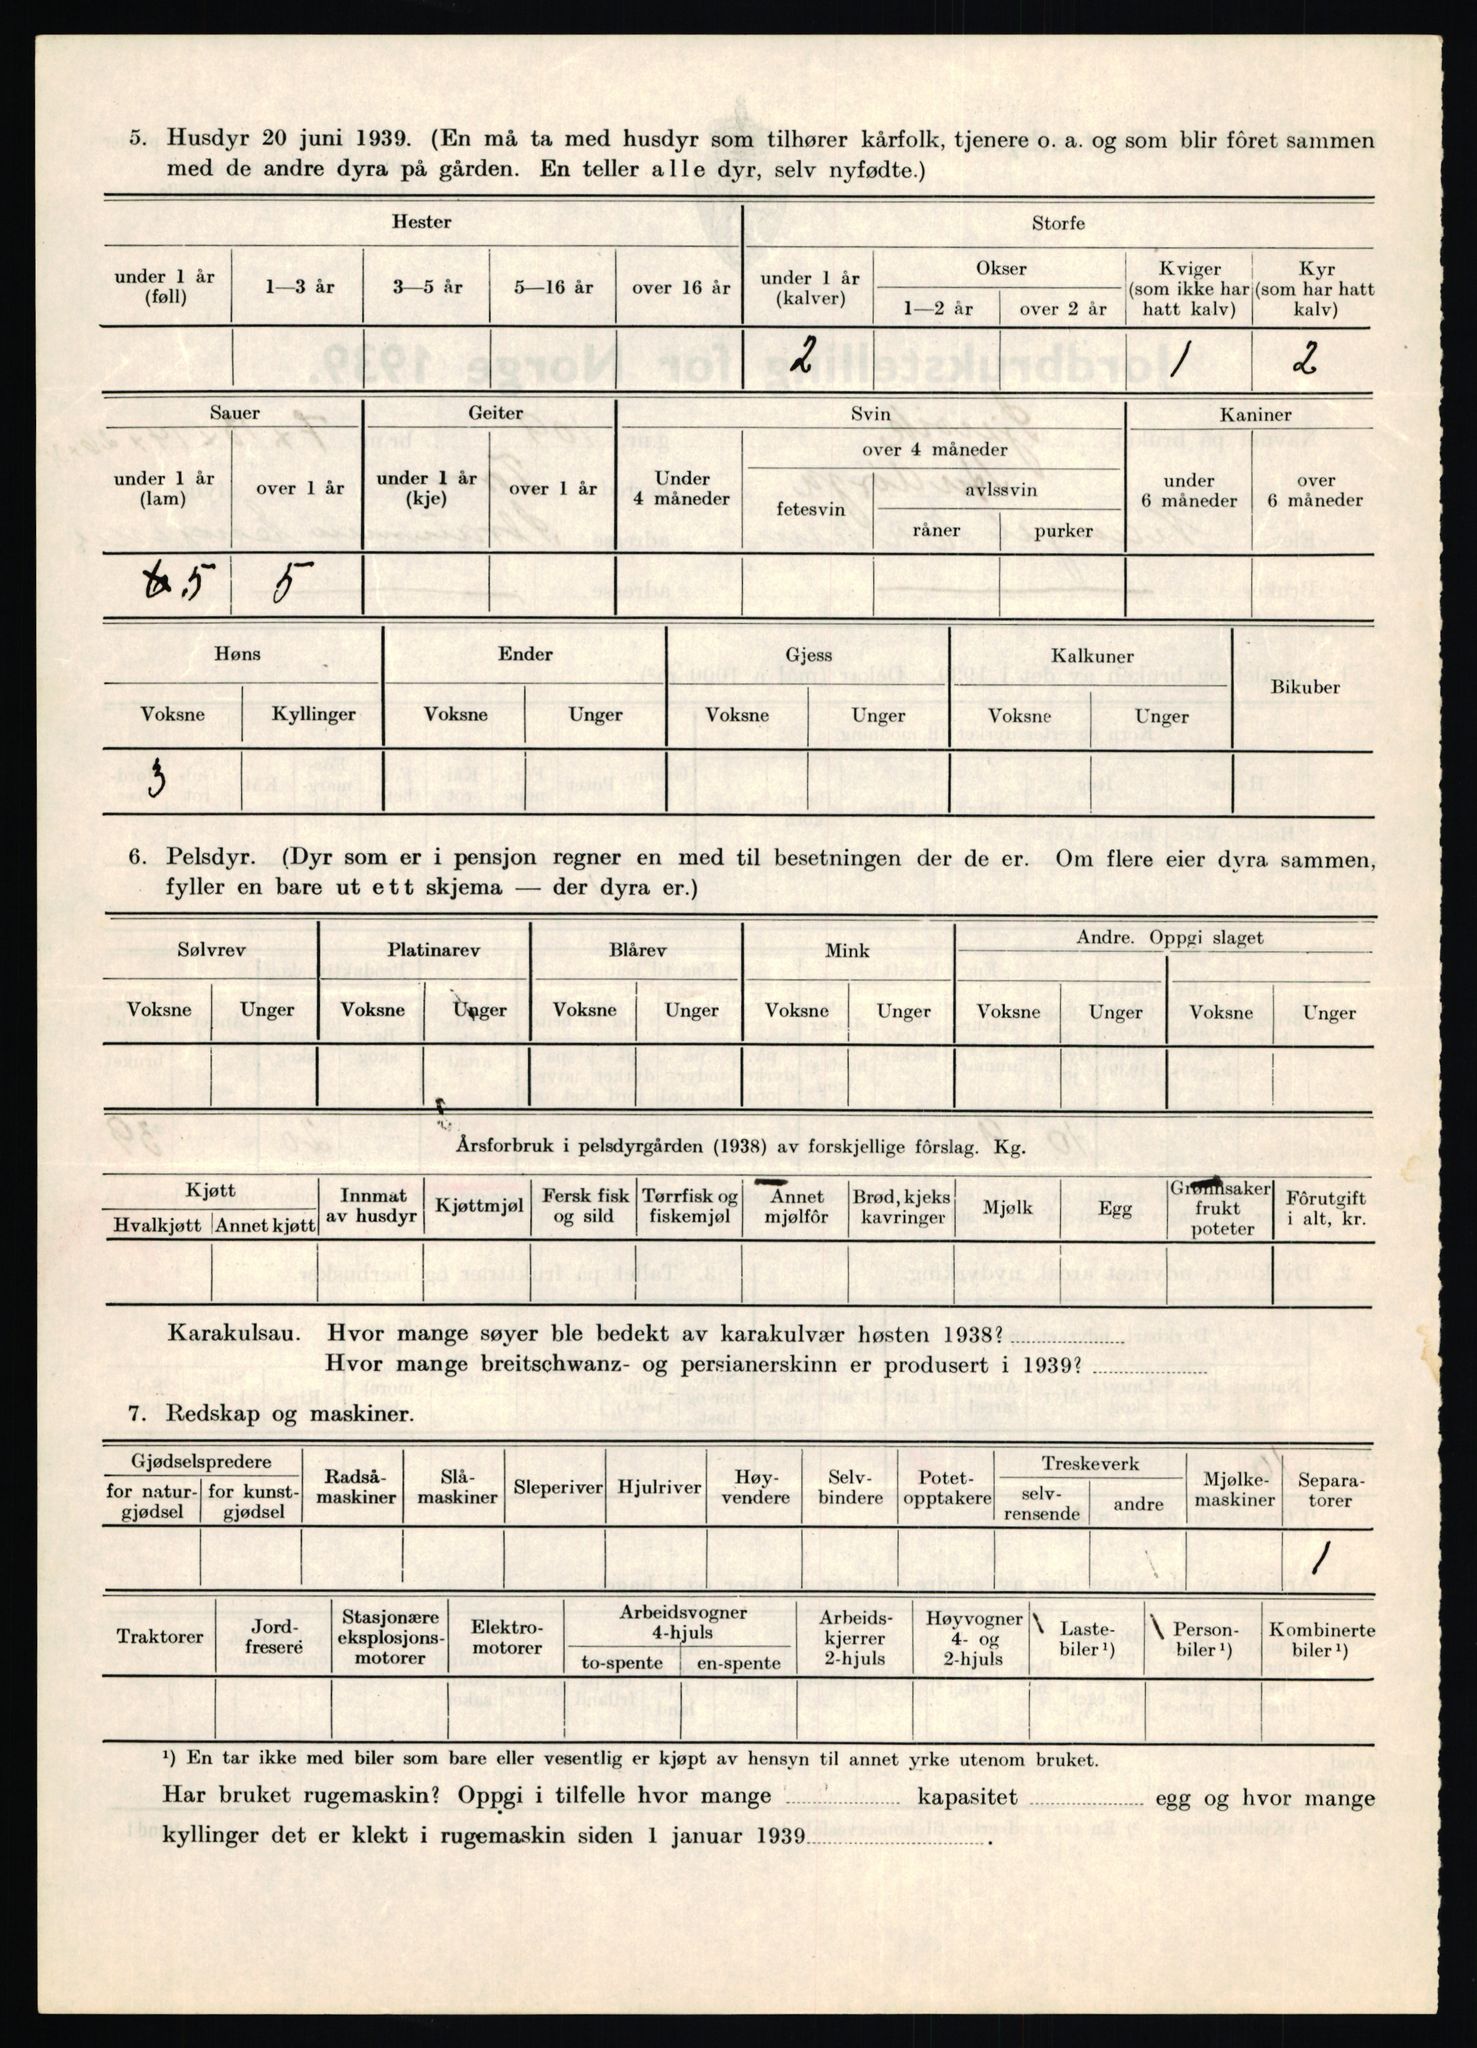 5. Husdyr 20 juni 1939. (En må ta med husdyr som tilhører kårfolk, tjenere o. a. og som blir fôret sammen
med de andre dyra på gården. En teller alle dyr, selv nyfødte.)
Hester Storfe
under 1 år (føll) 1—3 år 3—5 år 5—16 år over 16 år under 1 år (kalver) Okser Kviger (som ikke har hatt kalv) Kyr (som har hatt kalv)
1—2 år over 2 år
2 1 2
Sauer Geiter Svin Kaniner
over 4 måneder
under 1 år (lam) over 1 år under 1 år (kje) over 1 år Under 4 måneder fetesvin avlssvin under 6 måneder over 6 måneder
råner purker
5 5
Høns Ender Gjess Kalkuner Bikuber
Voksne Kyllinger Voksne Unger Voksne Unger Voksne Unger
3
6. Pelsdyr. (Dyr som er i pensjon regner en med til besetningen der de er. Om flere eier dyra sammen,
fyller en bare ut ett skjema — der dyra er.)
Sølvrev Platinarev Blårev Mink Andre. Oppgi slaget
Voksne Unger Voksne Unger Voksne Unger Voksne Unger Voksne Unger Voksne Unger
Årsforbruk i pelsdyrgården (1938) av forskjellige fôrslag. Kg.
Kjøtt Innmat av husdyr Kjøttmjøl Fersk fisk og sild Tørrfisk og fiskemjøl Annet mjølfôr Brød, kjeks kavringer Mjølk Egg Grønnsaker frukt poteter Fôrutgift i alt, kr.
Hvalkjøtt Annet kjøtt
Karakulsau. Hvor mange søyer ble bedekt av karakulvær høsten 1938?
Hvor mange breitschwanz- og persianerskinn er produsert i 1939?
7. Redskap og maskiner.
Gjødselspredere Radså-maskiner Slå-maskiner Sleperiver Hjulriver Høy-vendere Selv-bindere Potet-opptakere Treskeverk Mjølke-maskiner Separa-torer
for natur-gjødsel for kunst-gjødsel selv-rensende andre
1
Traktorer Jord-fresere Stasjonære eksplosjons-motorer Elektro-motorer Arbeidsvogner 4-hjuls Arbeids-kjerrer 2-hjuls Høyvogner 4- og 2-hjuls Laste-biler ¹) Person-biler ¹) Kombinerte biler ¹)
to-spente en-spente
¹) En tar ikke med biler som bare eller vesentlig er kjøpt av hensyn til annet yrke utenom bruket.
Har bruket rugemaskin? Oppgi i tilfelle hvor mange kapasitet egg og hvor mange
kyllinger det er klekt i rugemaskin siden 1 januar 1939 .